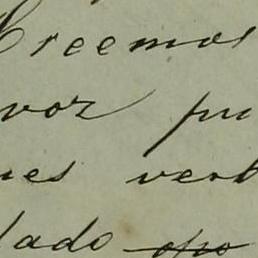 Creemos
voz pu
ues verb
lado